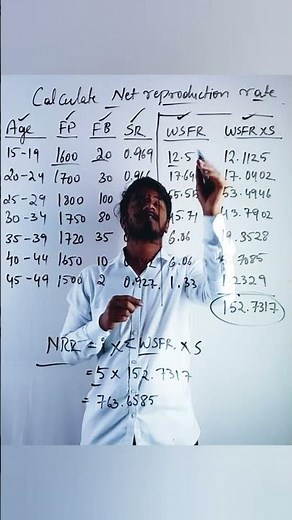 Calculate Net reproduction rate
Age FP FB SR WSFR WSFR X S
15-19 1600 20 0.969 12.5 12.1125
20-24 1700 30 17.0402
25-29 1800 100 53.4946
30-34 1750 80 45.71 43.7902
35-39 1720 35
40-44 1650 10 6.06
45-49 1500 2 0.927 1.33 1.2329
152.7317
NRR = i X Σ WSFR. X S
= 5 X 152.7317
= 763.6585